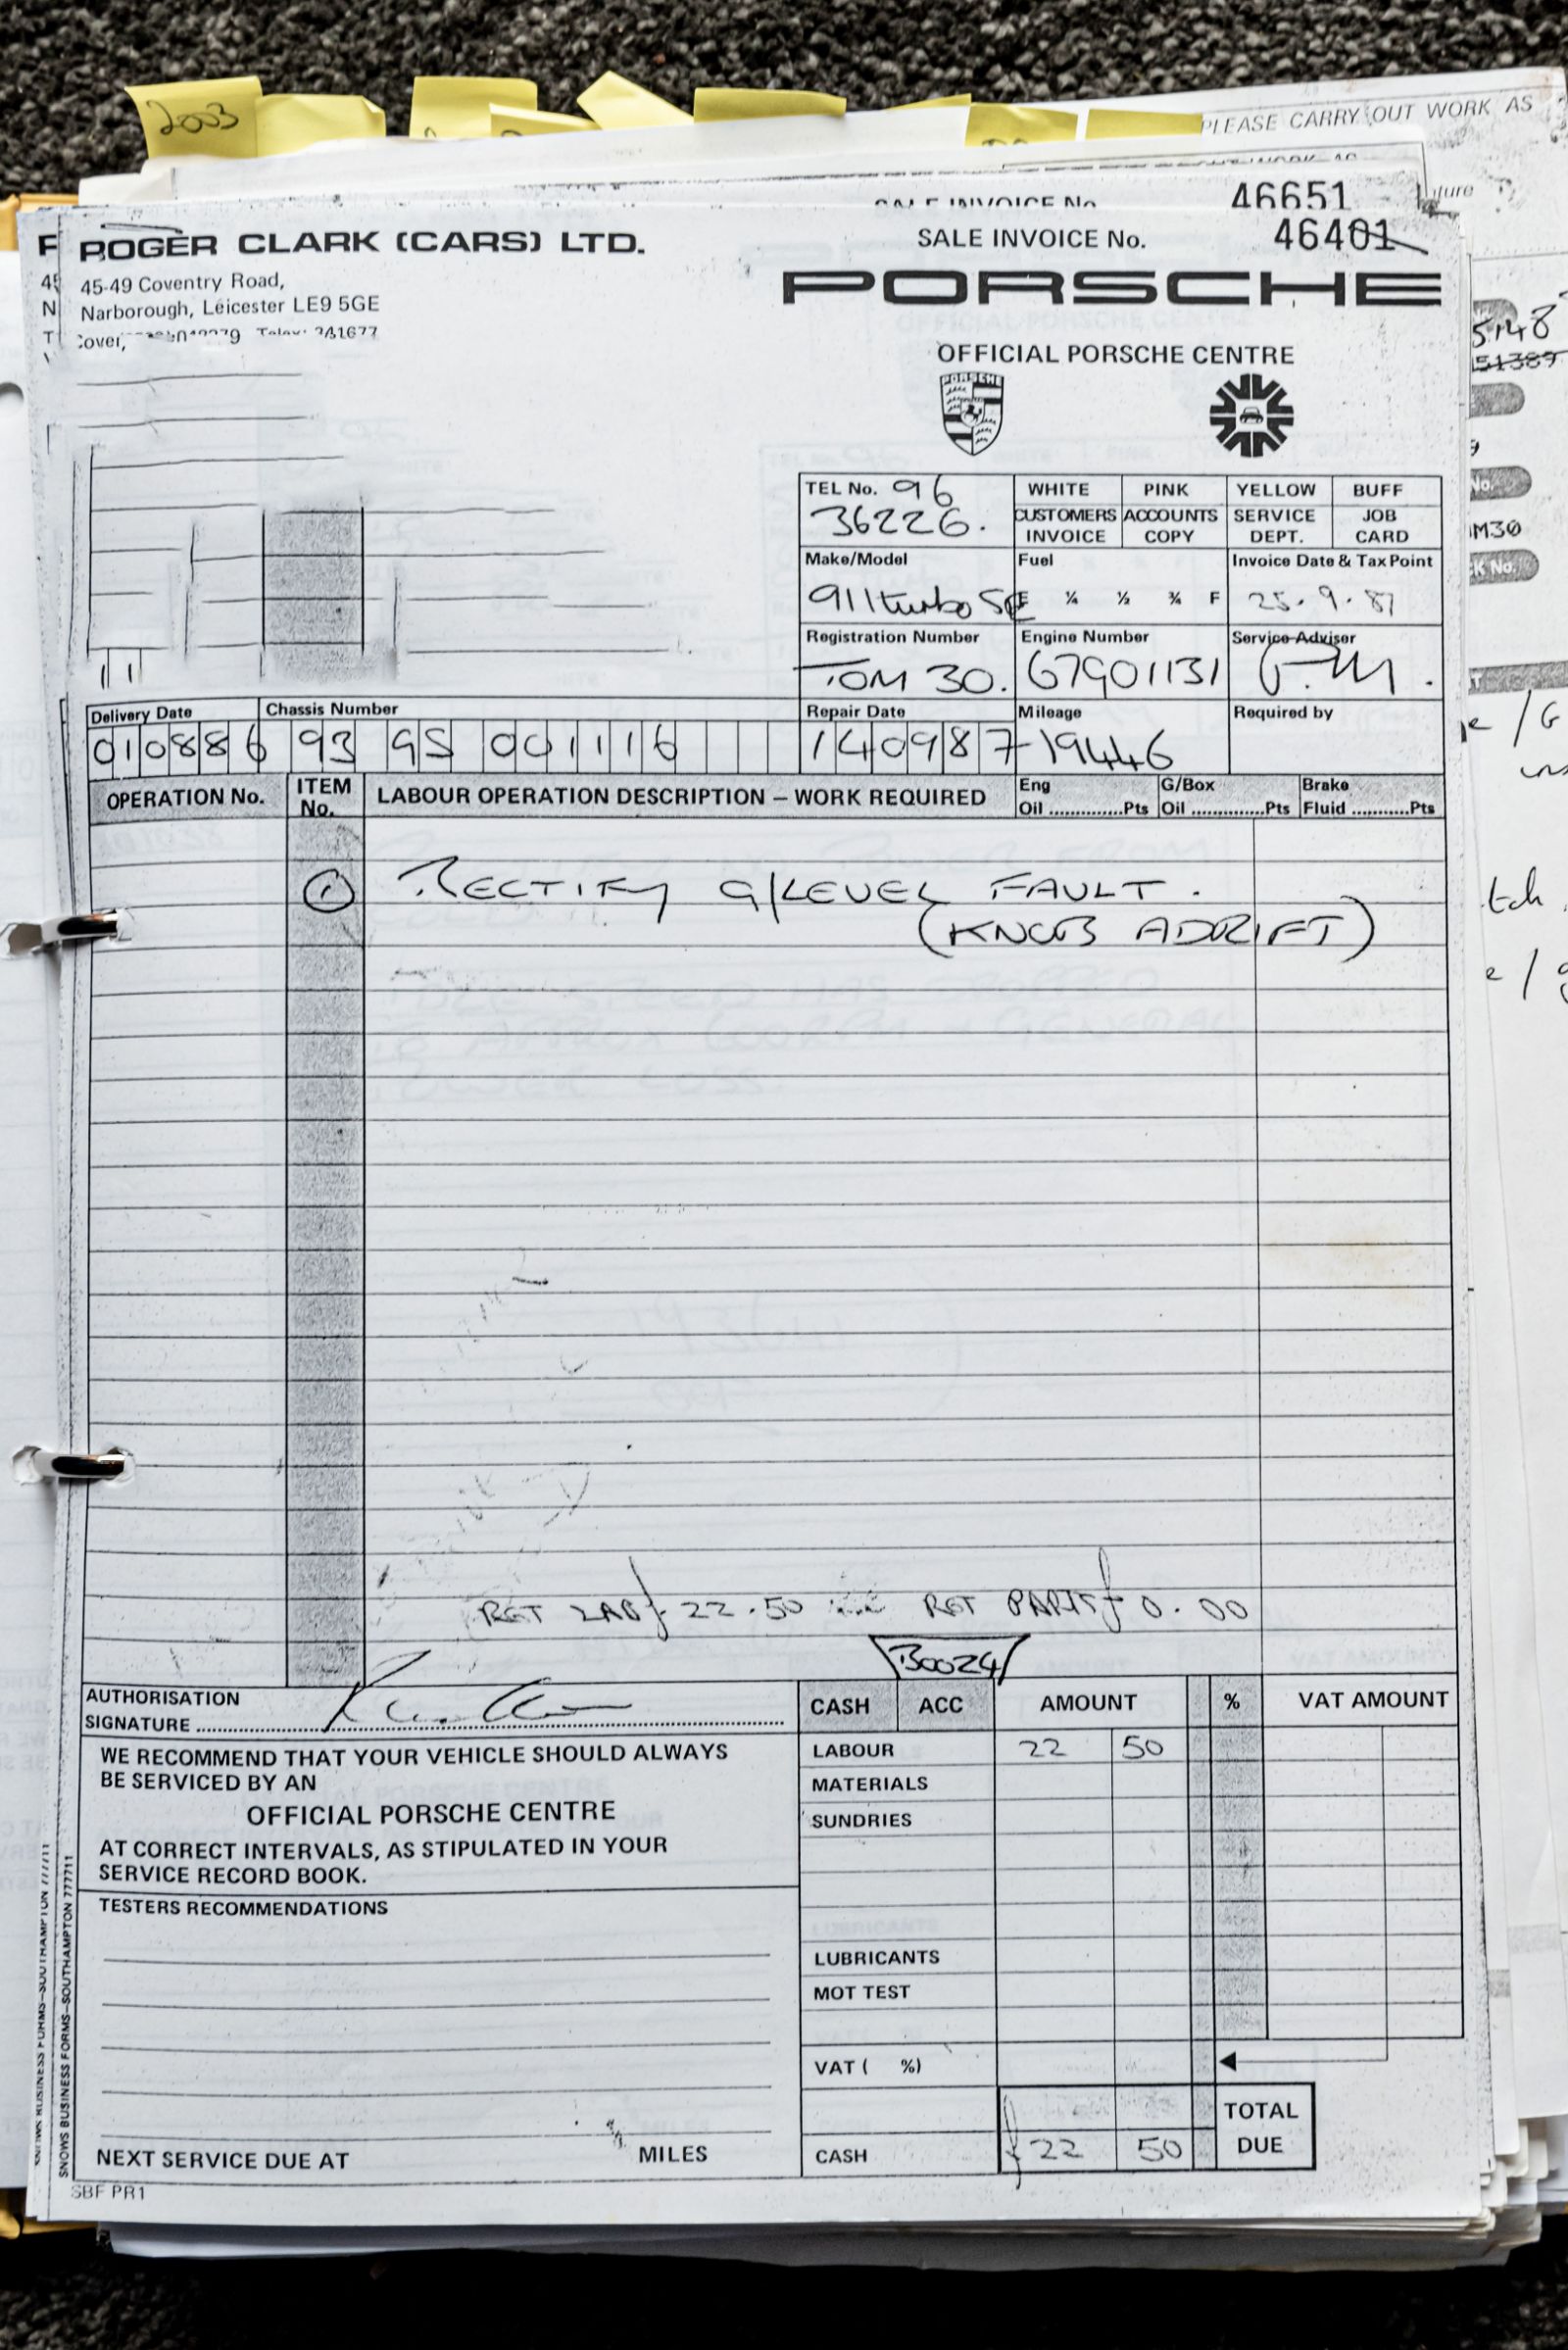 2003
PLEASE CARRY OUT WORK AS
46651
ROGER CLARK (CARS) LTD.
SALE INVOICE No. 46401
45-49 Coventry Road,
Narborough, Leicester LE9 5GE
PORSCHE
OFFICIAL PORSCHE CENTRE
PORSCHE
TEL No. 96
36226.
WHITE PINK YELLOW BUFF
CUSTOMERS INVOICE ACCOUNTS COPY SERVICE DEPT. JOB CARD
Make/Model Fuel Invoice Date & Tax Point
911 turbo SE E ¼ ½ ¾ F 25.9.87
Registration Number Engine Number Service Adviser
TOM 30. 67G01131
Delivery Date Chassis Number Repair Date Mileage Required by
010886 93 GS 001116 140987 19446
OPERATION No. ITEM No. LABOUR OPERATION DESCRIPTION – WORK REQUIRED Eng Oil ............Pts G/Box Oil ............Pts Brake Fluid ..........Pts
1 RECTIFY G/LEVEL FAULT.
(KNOB ADRIFT)
RET LAB £ 22.50 RET PARTS £ 0.00
B0024
AUTHORISATION
SIGNATURE
CASH ACC AMOUNT % VAT AMOUNT
WE RECOMMEND THAT YOUR VEHICLE SHOULD ALWAYS
BE SERVICED BY AN
OFFICIAL PORSCHE CENTRE
AT CORRECT INTERVALS, AS STIPULATED IN YOUR
SERVICE RECORD BOOK.
TESTERS RECOMMENDATIONS
NEXT SERVICE DUE AT MILES
LABOUR 22 50
MATERIALS
SUNDRIES
LUBRICANTS
MOT TEST
VAT ( %)
TOTAL
DUE
CASH £22 50
SNOWS BUSINESS FORMS–SOUTHAMPTON 777711
SBF PR1